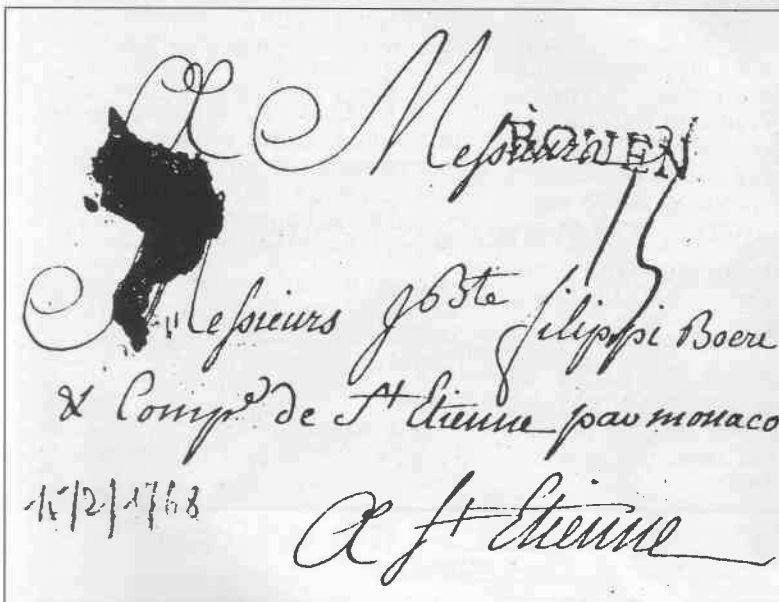 A Messieurs
ROUEN
Messieurs J Bte filippi Boere
& Compe de St Etienne par monaco
15/2/1768
A St Etienne